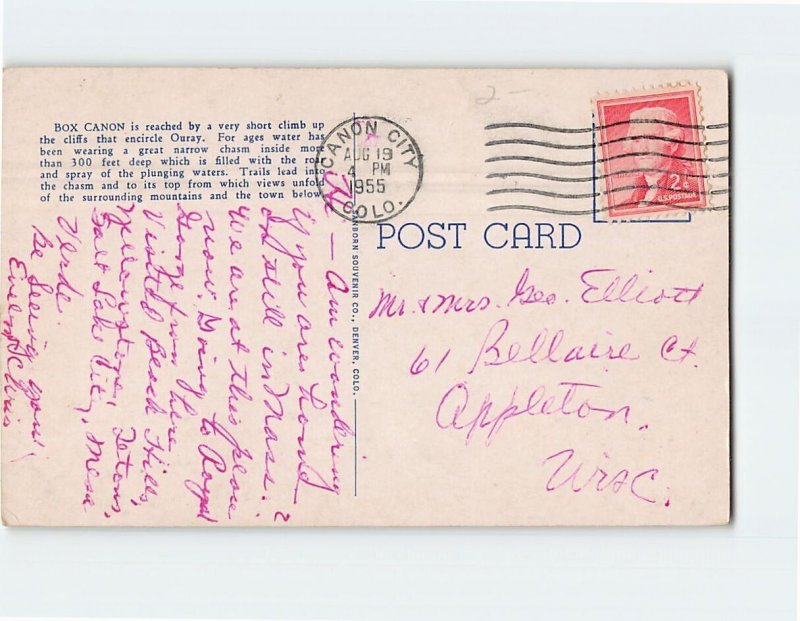 BOX CANON is reached by a very short climb up
the cliffs that encircle Ouray. For ages water has
been wearing a great narrow chasm inside more
than 300 feet deep which is filled with the roar
and spray of the plunging waters. Trails lead into
the chasm and to its top from which views unfold
of the surrounding mountains and the town below
Hi — Am wondering
if you are home
or still in Mass.?
We are at this place
now. Going to Royal
Gorge from here.
Visited Black Hills,
Yellowstone, Tetons,
Salt Lake City, Mesa
Verde.
Be seeing you!
SANBORN SOUVENIR CO., DENVER, COLO.
CANON CITY
AUG 19
4 PM
1955
COLO.
2-
2¢
U.S. POSTAGE
POST CARD
Mr. & Mrs. Geo. Elliott
61 Bellaire Ct.
Appleton.
Wisc.